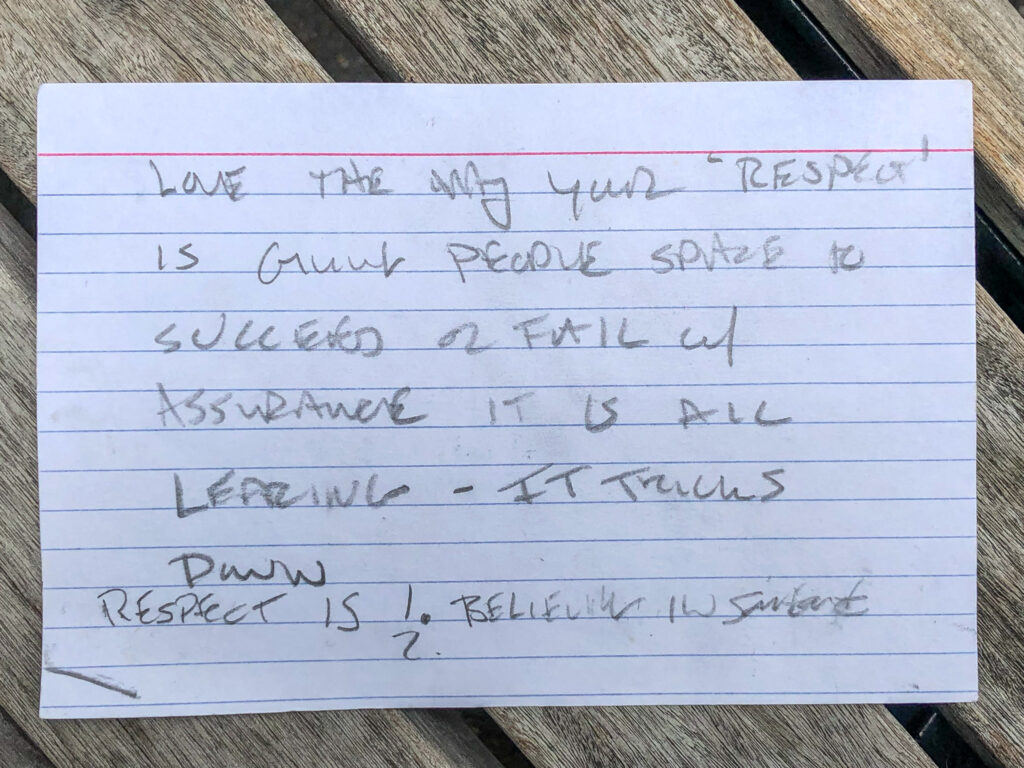 LOVE THE WAY YOUR 'RESPECT'
IS GIVING PEOPLE SPACE to
SUCCEED OR FAIL w/
ASSURANCE IT IS ALL
LEARING - IT TRICKLS
DOWN
RESPECT IS 1. BELIEVING IN
2.